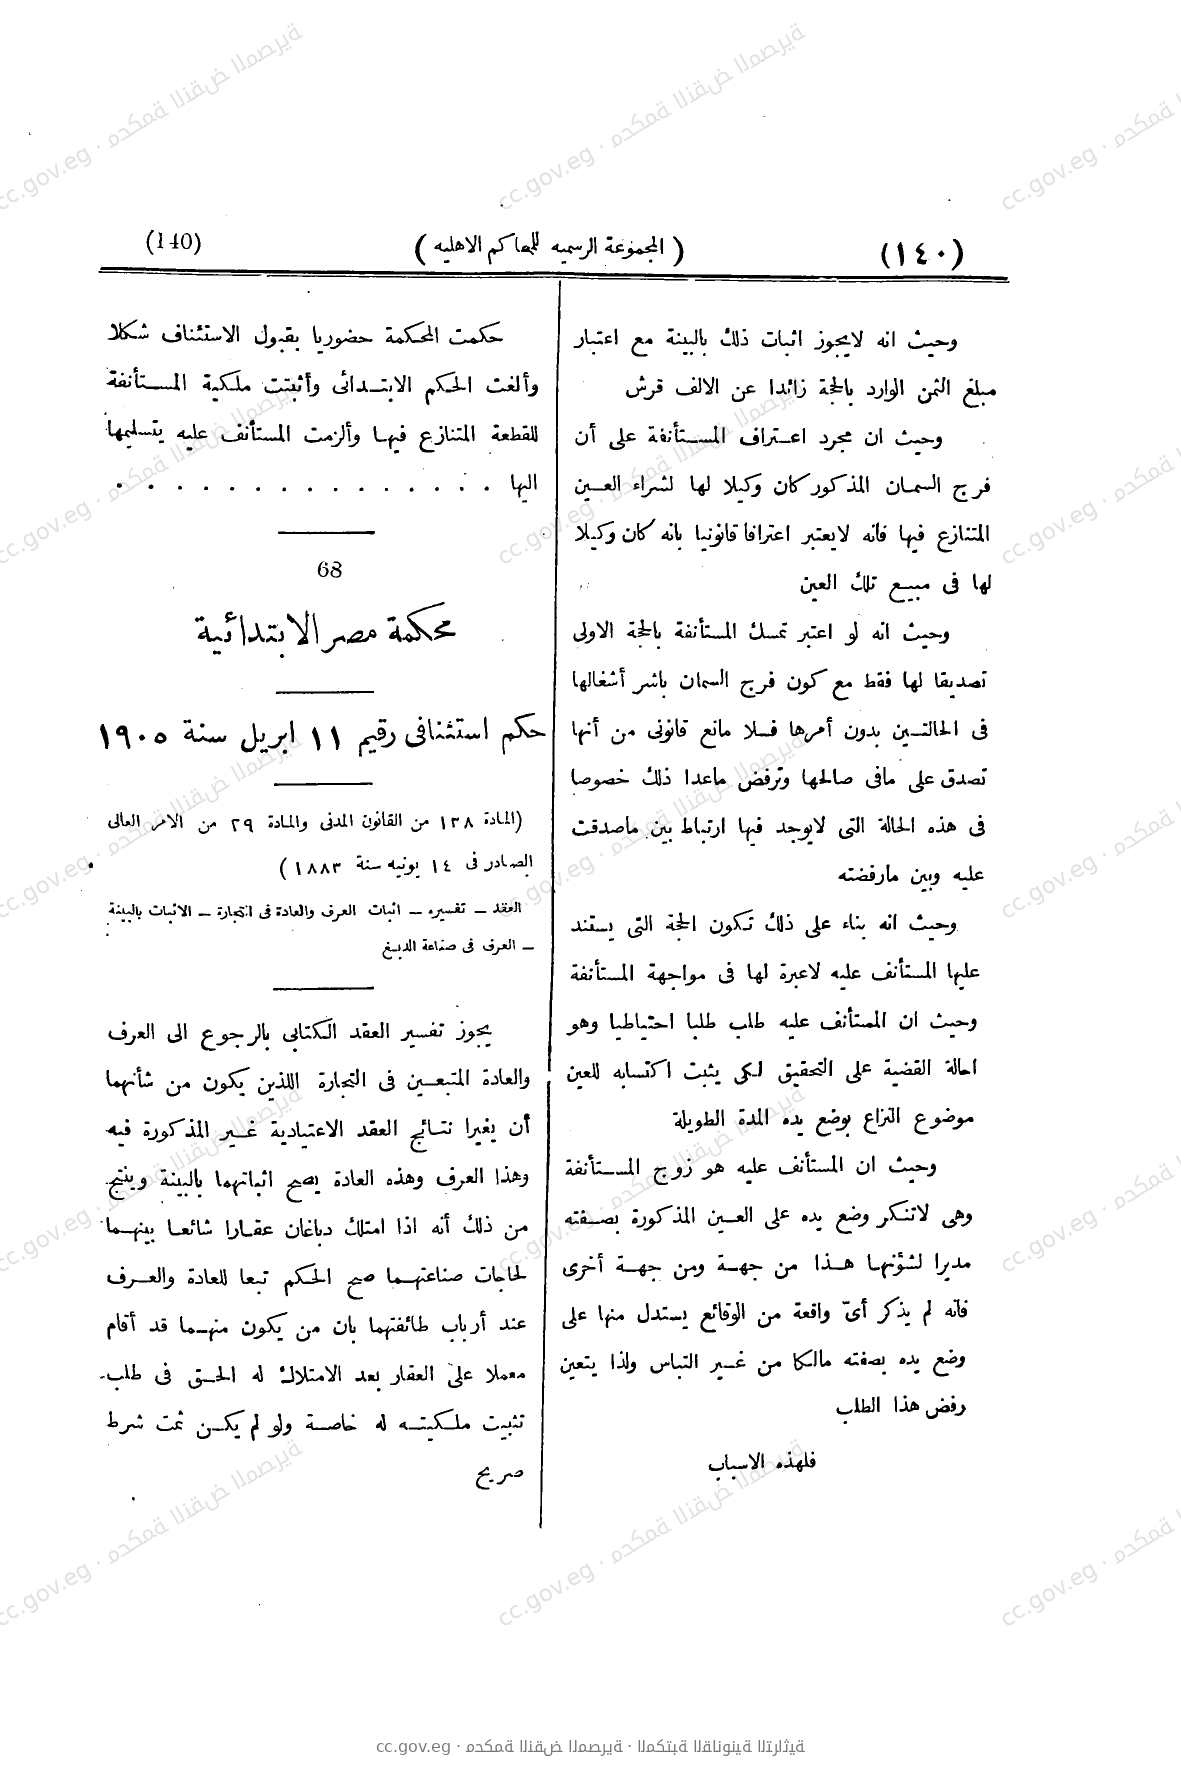 (١٤٠) ( المجموعة الرسميه للمحاكم الاهليه ) (140)
وحيث انه لايجوز اثبات ذلك بالبينة مع اعتبار
مبلغ الثمن الوارد بالحجة زائدا عن الالف قرش
وحيث ان مجرد اعتراف المستأنفة على أن
فرج السمان المذكور كان وكيلا لها لشراء العين
المتنازع فيها فانه لايعتبر اعترافا قانونيا بانه كان وكيلا
لها فى مبيع تلك العين
وحيث انه لو اعتبر تمسك المستأنفة بالحجة الاولى
تصديقا لها فقط مع كون فرج السمان باشر أشغالها
فى الحالتين بدون أمرها فلا مانع قانونى من أنها
تصدق على مافى صالحها وترفض ماعدا ذلك خصوصا
فى هذه الحالة التى لايوجد فيها ارتباط بين ماصدقت
عليه وبين مارفضته
وحيث انه بناء على ذلك تكون الحجة التى يستند
عليها المستأنف عليه لاعبرة لها فى مواجهة المستأنفة
وحيث ان المستأنف عليه طلب طلبا احتياطيا وهو
احالة القضية على التحقيق لكى يثبت اكتسابه للعين
موضوع النزاع بوضع يده المدة الطويلة
وحيث ان المستأنف عليه هو زوج المستأنفة
وهى لاتنكر وضع يده على العين المذكورة بصفته
مديرا لشؤنها هذا من جهة ومن جهة أخرى
فانه لم يذكر أىّ واقعة من الوقائع يستدل منها على
وضع يده بصفته مالكا من غير التباس ولذا يتعين
رفض هذا الطلب
فلهذه الاسباب
حكمت المحكمة حضوريا بقبول الاستئناف شكلا
وألغت الحكم الابتدائى وأثبتت ملكية المستأنفة
للقطعة المتنازع فيها وألزمت المستأنف عليه بتسليمها
اليها . . . . . . . . . . . . . . .
68
محكمة مصر الابتدائية
حكم استئنافى رقيم ١١ ابريل سنة ١٩٠٥
(المادة ١٣٨ من القانون المدنى والمادة ٢٩ من الامر العالى
الصادر فى ١٤ يونيه سنة ١٨٨٣ )
العقد — تفسيره — اثبات العرف والعادة فى التجارة — الاثبات بالبينة
— العرف فى صناعة الدبغ
يجوز تفسير العقد الكتابى بالرجوع الى العرف
والعادة المتبعين فى التجارة اللذين يكون من شأنهما
أن يغيرا نتائج العقد الاعتيادية غير المذكورة فيه
وهذا العرف وهذه العادة يصح اثباتهما بالبينة وينتج
من ذلك أنه اذا امتلك دباغان عقارا شائعا بينهما
لحاجات صناعتهما صح الحكم تبعا للعادة والعرف
عند أرباب طائفتهما بان من يكون منهما قد أقام
معملا على العقار بعد الامتلاك له الحق فى طلب
تثبيت ملكيته له خاصة ولو لم يكن ثمت شرط
صريح
cc.gov.eg · محكمة النقض المصرية · المكتبة القانونية التراثية